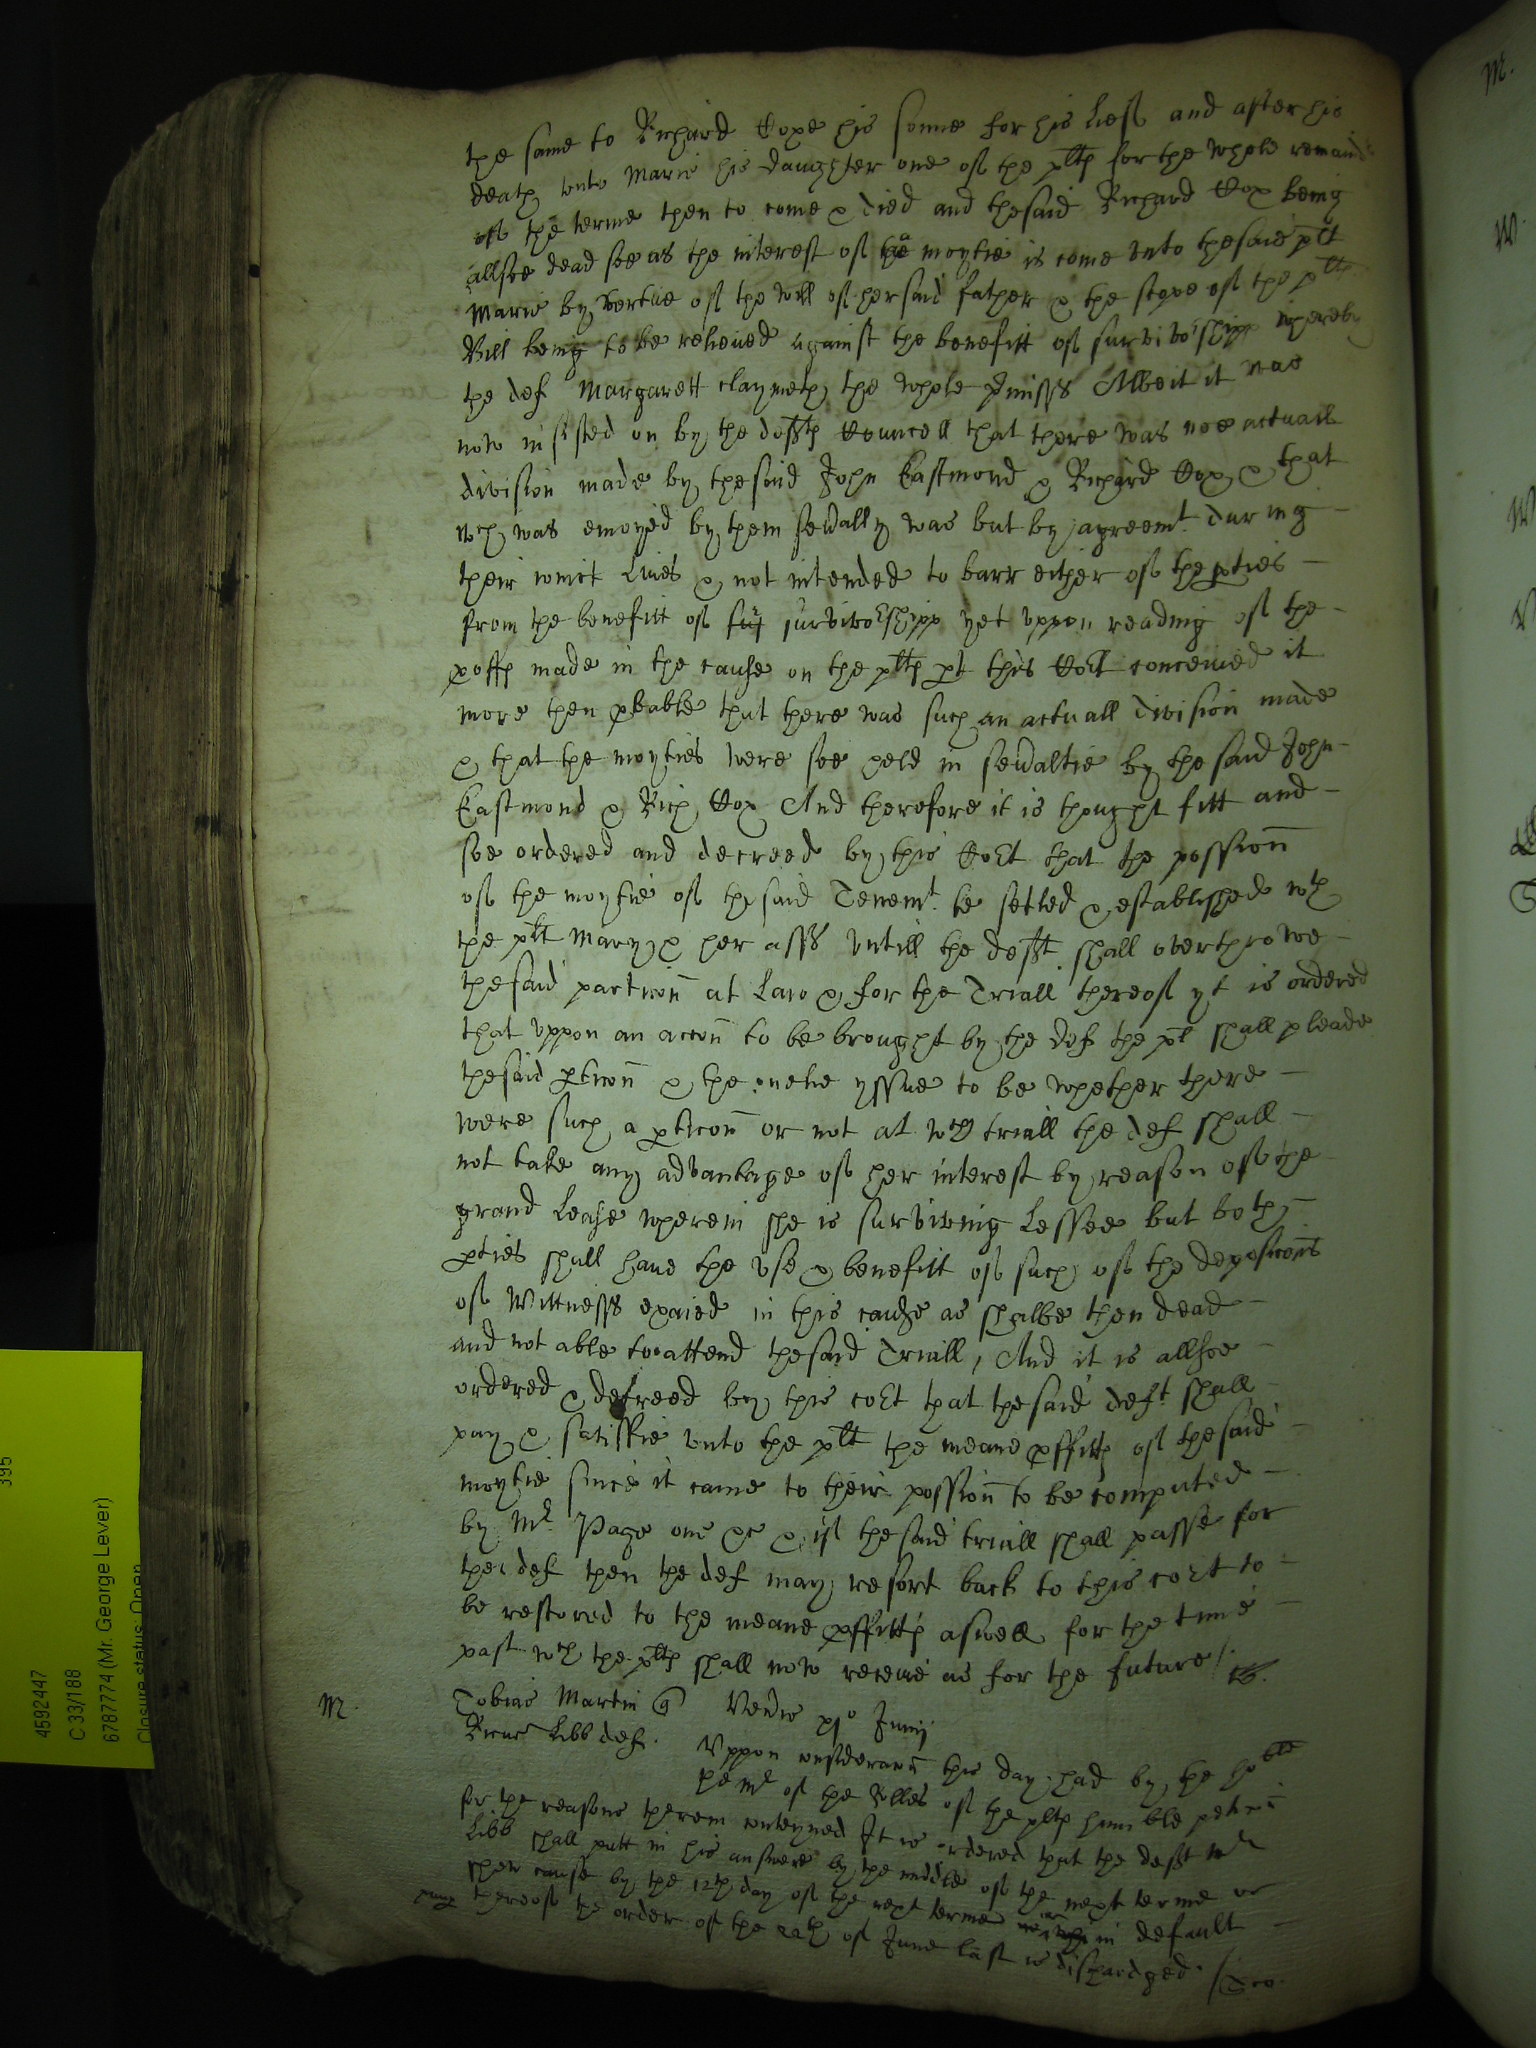 the same to Richard Coxe his sonne for his lief and after his
death unto Marie his daughter one of the plts for the whole remaind
of the terme then to come & died and the said Richard Cox being
allsoe dead soe as the interest of the moytie is come unto the said plt
Marie by vertue of the will of her said father & the scope of the plts
Bill being to be releived against the benefitt of survivorshipp whereby
the def Margarett claymeth the whole pmisses Albeit it was
now insisted on by the defts Councell that there was noe actuall
division made by the said John Eastmond & Richard Cox & that
wch was enioyed by them sevally was but by agreemt during
their ioinct lives & not intended to barr either of the pties
from the benefitt of survivorshipp yet uppon reading of the
poffs made in the cause on the plts pt this Cort conceived it
more then pbable that there was such an actuall division made
& that the moyties were soe held in sevaltie by the said John
Eastmond & Rich Cox And therefore it is thought fitt and
soe ordered and decreed by this Cort that the possion
of the moytie of the said Tenemt be setled & established wth
the plt Mary & her asss untill the deft shall overthrowe
the said particon at Law & for the Triall thereof yt is ordered
that uppon an accon to be brought by the def the pl shall pleade
the said pticon & the onelie yssue to be whether there
were such a pticon or not at wch triall the def shall
not take any advantage of her interest by reason of the
grand Lease wherein she is surviving Lessee but both
pties shall have the use & benefitt of such of the deposicons
of Wittnesses exaied in this cause as shalbe then dead
and not able to attend the said Triall, And it is allsoe
ordered & decreed by this cort that the said deft shall
pay & satisfie unto the plt the meane pffitts of the said
moytie since it came to their possion to be computed
by Mr Page one &c & if the said triall shall passe for
the def then the def may resort back to this cort to
be restored to the meane pffitts aswell for the time
past wch the plts shall now receive as for the future /.
M. Tobias Martin q Venis xjo Junij
Ricus Libb def. Uppon consideracon this day had by the hoble
the Mr of the Rolles of the plts humble peticon
for the reasons therein conteyned It is ordered that the deft
Libb shall putt in his answere by the middle of the next terme or
shew cause by the 12th day of the next terme in default
thereof the order of the 22th of June last is dischardged /
4592447
C 33/188
6787774 (Mr. George Lever)
Closure status: Open
395